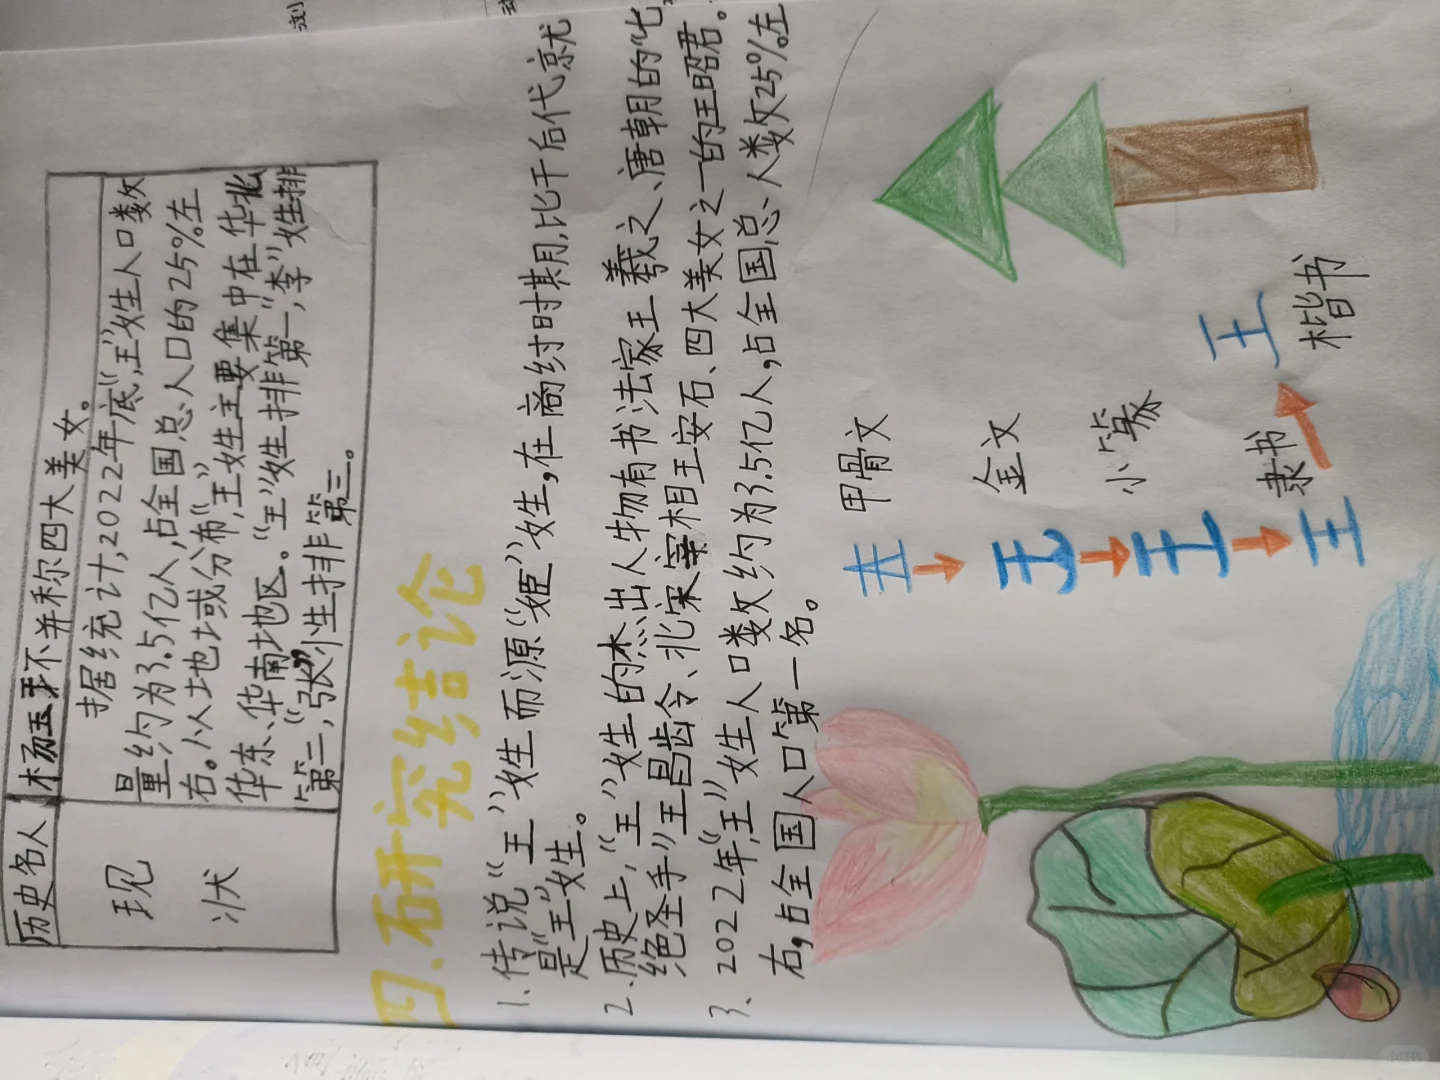 历史名人
杨玉环并称四大美女。
现
状
据统计,2022年底,“王”姓人口数
量约为3.5亿人,占全国总人口的25%左
右。从地域分布,“王”姓主要集中在华北
华东、华南地区。“王”姓排第一,“李”姓排
第二,“张”姓排第三。
四、研究结论
1、传说“王”姓而源“姬”姓,在商纣时期,比干后代就
是“王”姓。
2、历史上,“王”姓的杰出人物有书法家王羲之、唐朝的“七
绝圣手”王昌龄、北宋宰相王安石、四大美女之一的王昭君。
3、2022年,“王”姓人口数约为3.5亿人,占全国总人数25%左
右,占全国人口第一名。
甲骨文
金文
小篆
隶书
王
王
王
王
王
楷书